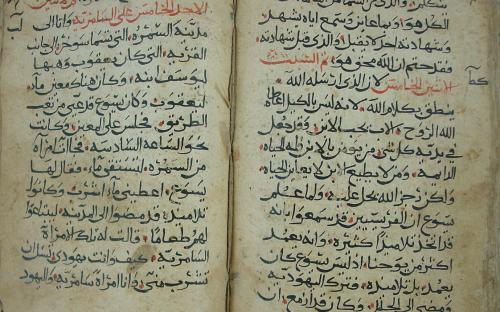 الكل هو وبما عاين وسمع اياه يشهد
وشهادته احد لا يقبل والذي قبل شهادته
فقد ختم ان الله محق هو تم السبت
الاثنين الخامس لان الذي ارسله الله
ينطق بكلام الله لانه ليس بالكيل اعطا
الله الروح الاب يحب الابن وقد جعل
في يديه كل شي من يومن بالابن فله الحياه
الدايمة ومن لا يطيع الابن لا يعاين الحياه
ولكن رجز الله يحل عليه ولما علم
يسوع ان الفريسيين قد سمعوا بانه
قد اتخذ تلاميذا كثيرة وانه يعمد
اكثر من يوحنا اذ ليس يسوع كان
يعمد بل تلاميذه فترك اليهودية
ومضى الى الجليل وكان قد ازمع ان
الاحد الخامس على السامرية واتا الى
مدينة السمرة التي تسما سوخر الى جانب
القرية التي كان يعقوب وهبها
ليوسف ابنه وكان هناك معين ما
ليعقوب وكان يسوع قد عي من تعب
الطريق فجلس على المعين وكانت
نحو الساعة السادسة فجات امراة
من السمرة لتستقي ما فقال لها
يسوع اعطيني ما اشرب وكانوا
تلاميذه قد مضوا الى المدينة ليبتاعوا
لهم طعاما قالت له تلك الامراة
السامرية كيف وانت يهودي تسال ان
تشرب مني وانا امراة سامرية واليهود